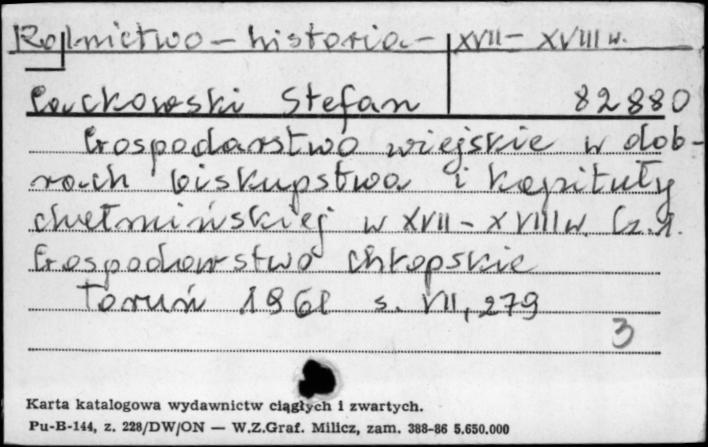 Rolnictwo – historia – XVII – XVIII w.
Cackowski Stefan 82880
Gospodarstwo wiejskie w dob-
rach biskupstwa i kapituły
chełmińskiej w XVII – XVIII w. Cz. 1.
Gospodarstwo chłopskie
Toruń 1961 s. VII, 279
3
Karta katalogowa wydawnictw ciągłych i zwartych.
Pu-B-144, z. 228/DW/ON — W.Z.Graf. Milicz, zam. 388-86 5.650.000